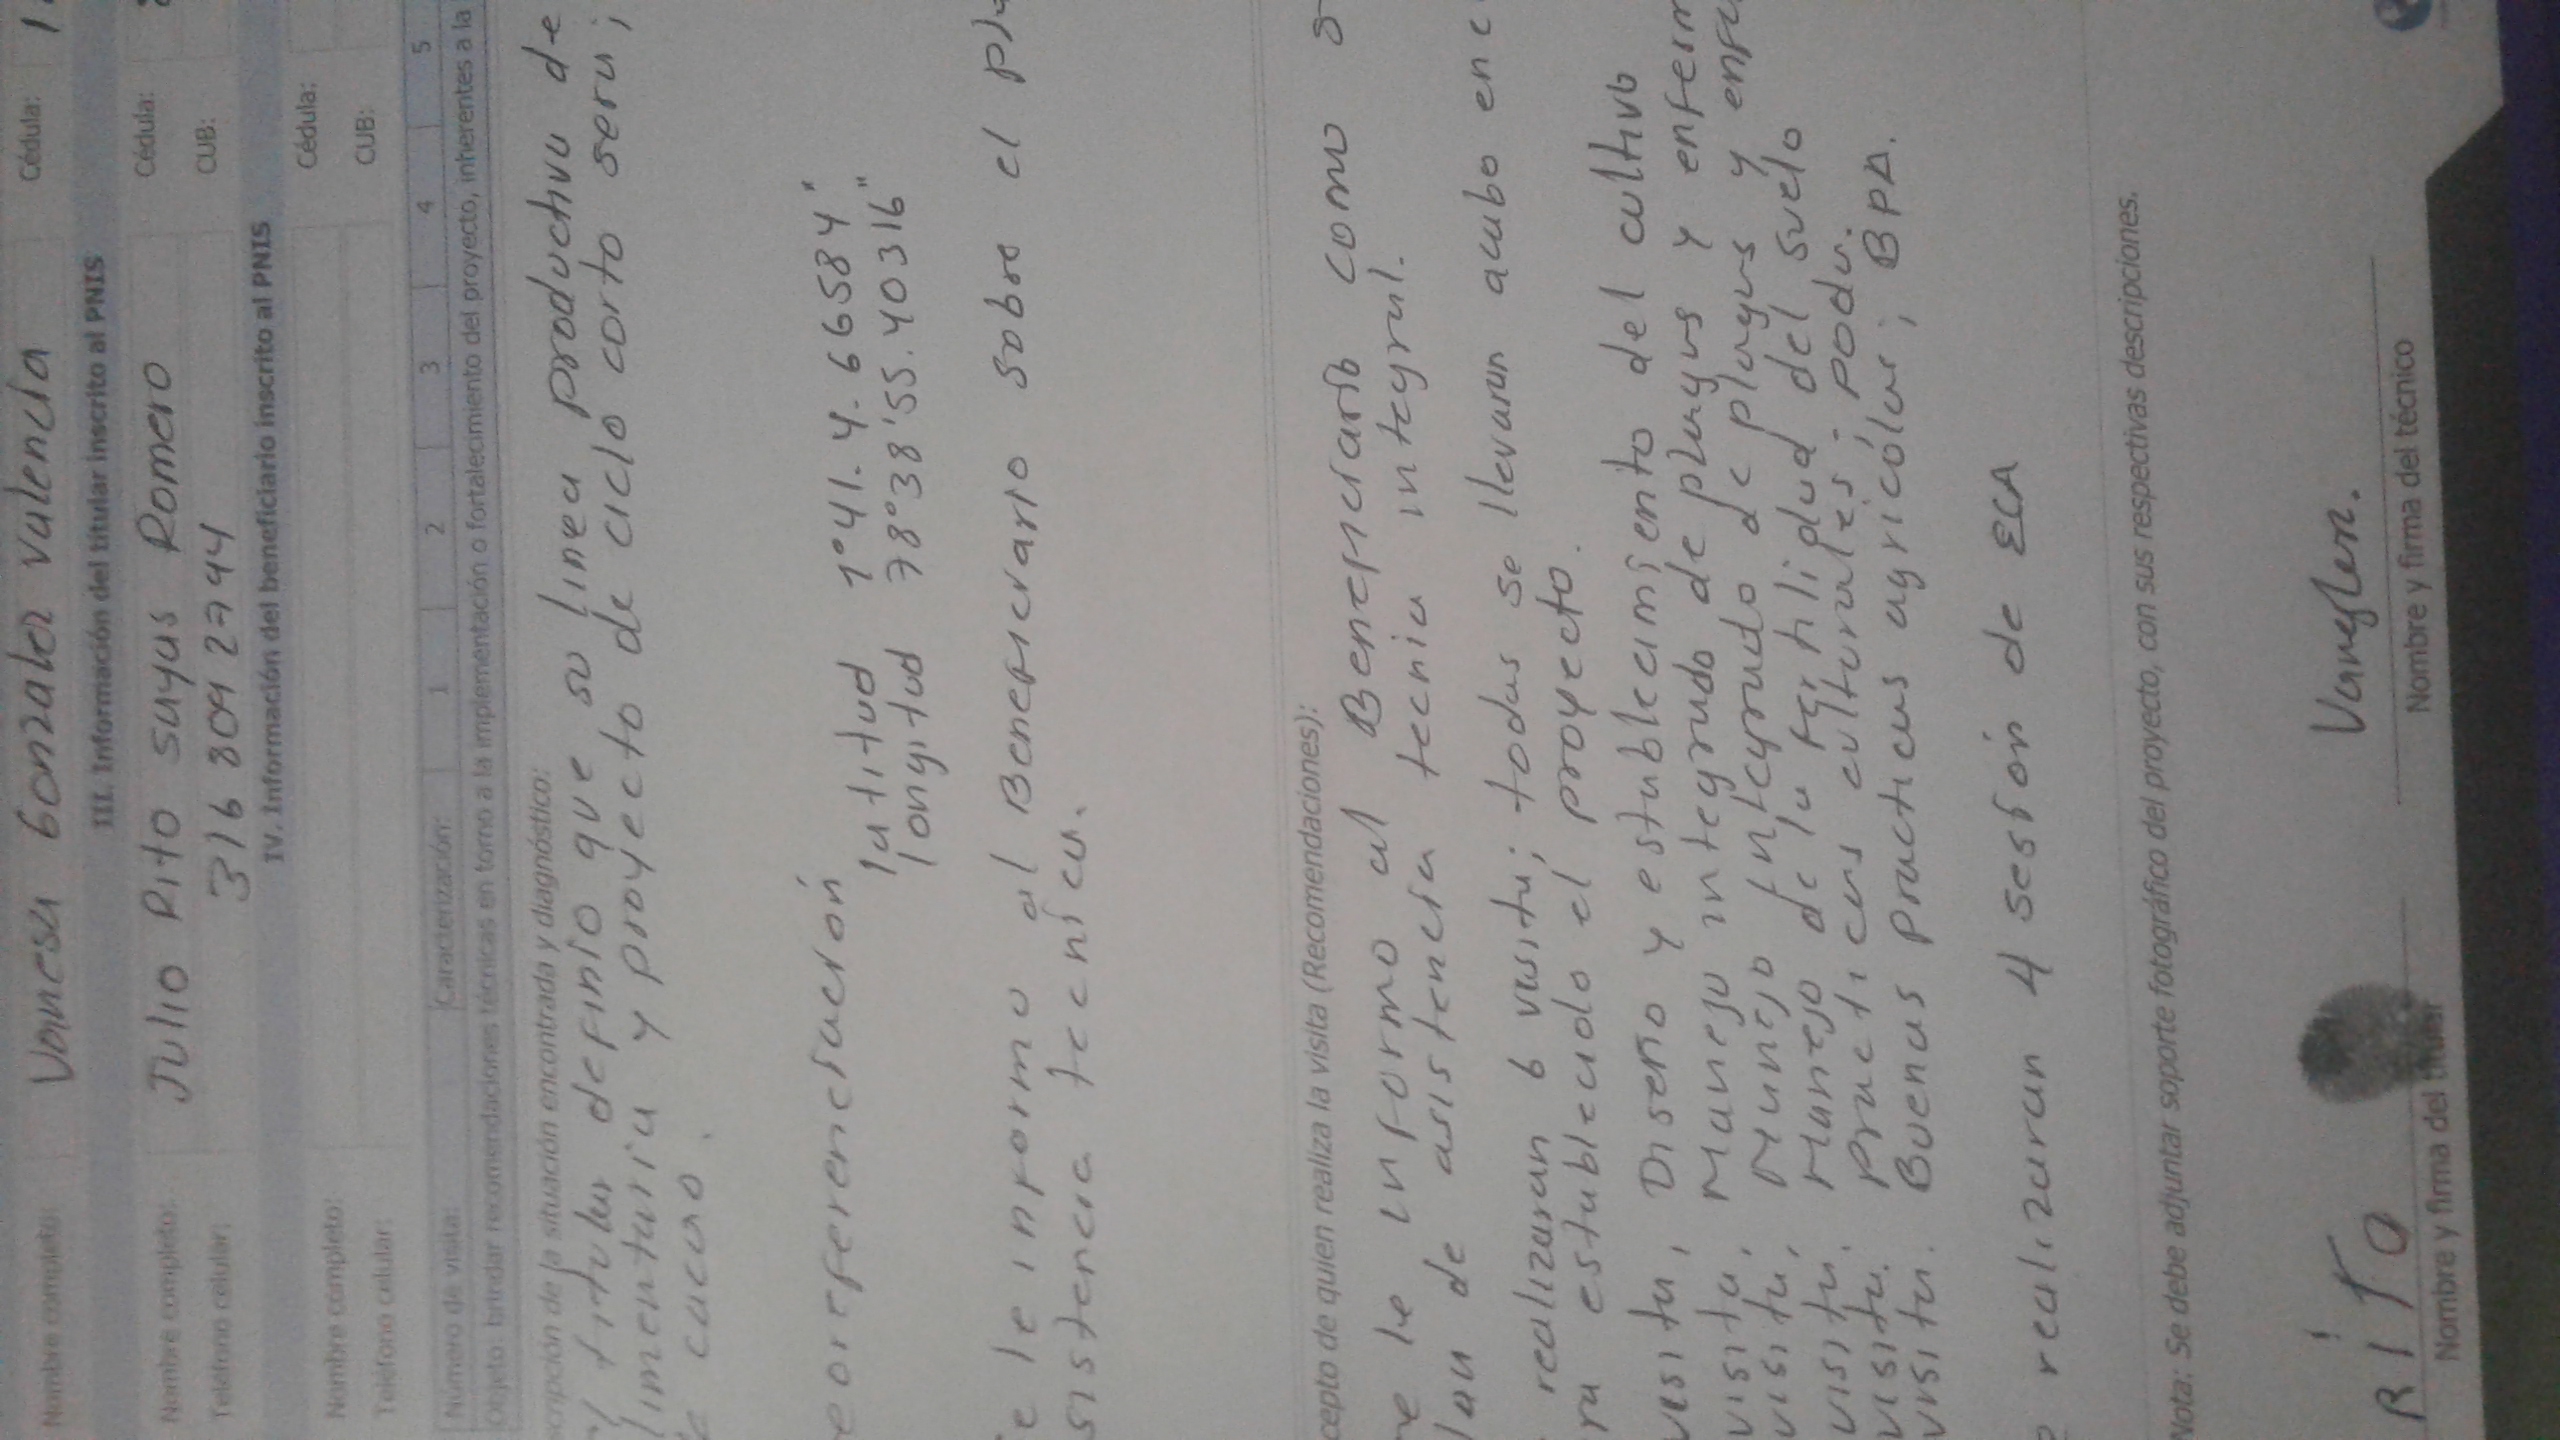 Nombre completo: Vanesa Gonzalez Valencia Cédula: 1
III. Información del titular inscrito al PNIS
Nombre completo: Julio Rito Suyus Romero Cédula:
Teléfono celular: 316 809 2794 CUB:
IV. Información del beneficiario inscrito al PNIS
Nombre completo: Cédula:
Teléfono celular: CUB:
Número de visita: Caracterización: 1 2 3 4 5
Objeto: brindar recomendaciones técnicas en torno a la implementación o fortalecimiento del proyecto, inherentes a la
scripción de la situación encontrada y diagnóstico:
titular definio que su linea productiva de
limentaria y proyecto de ciclo corto sera;
cacao.
eoreferenciación
latitud 1°41.4.66584"
longitud 78°38'55.40316"
e le informo al Beneficiario sobre el pla
sistencia tecnica.
cepto de quien realiza la visita (Recomendaciones):
e le informo al Beneficiario como
lan de asistencia tecnia integral.
realizaran 6 visita; todas se llevaran acabo en e
ra establecido el proyecto.
visita, Diseño y establecimiento del cultivo
visita, Manejo integrado de plagas y enferm
visita, Manejo integrado de plagas y enfe
visita. Manejo de la fertilidad del suelo
visita. Practicas culturales; poda.
visita. Buenas practicas agricolas; BPA.
realizaran 4 sesión de ECA
Nota: Se debe adjuntar soporte fotográfico del proyecto, con sus respectivas descripciones.
RiTO
Nombre y firma del titular Nombre y firma del técnico